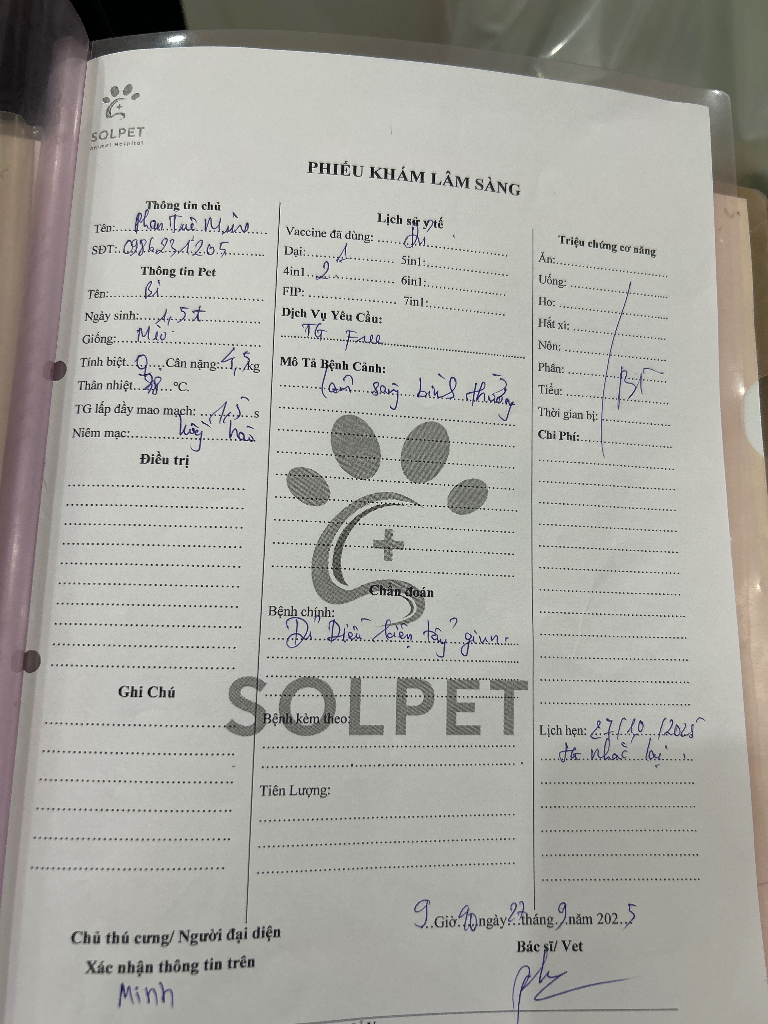 SOLPET
Animal Hospital
PHIẾU KHÁM LÂM SÀNG
Thông tin chủ
Tên: Phan Tuê Minh
SĐT: 0986231205
Thông tin Pet
Tên: Bi
Ngày sinh: 1,5t
Giống: Mèo
Tính biệt. Cân nặng: 4,5kg
Thân nhiệt 38 °C.
TG lấp đầy mao mạch: 1,5 s
Niêm mạc: hồng hào
Điều trị
Ghi Chú
Lịch sử y tế
Vaccine đã dùng:
Dại: 1 5in1:
4in1 2 6in1:
FIP: 7in1:
Dịch Vụ Yêu Cầu:
TG Free
Mô Tả Bệnh Cảnh:
Lâm sàng bình thường
Chẩn đoán
Bệnh chính:
Đủ Điều kiện tẩy giun.
SOLPET
Bệnh kèm theo:
Tiên Lượng:
Triệu chứng cơ năng
Ăn:
Uống:
Ho:
Hắt xì:
Nôn:
Phân: BT
Tiểu:
Thời gian bị:
Chi Phí:
Lịch hẹn: 27/10/2025
tg nhắc lại.
9 Giờ 90 ngày 27 tháng 9 năm 2025
Chủ thú cưng/ Người đại diện
Xác nhận thông tin trên
Minh
Bác sĩ/ Vet